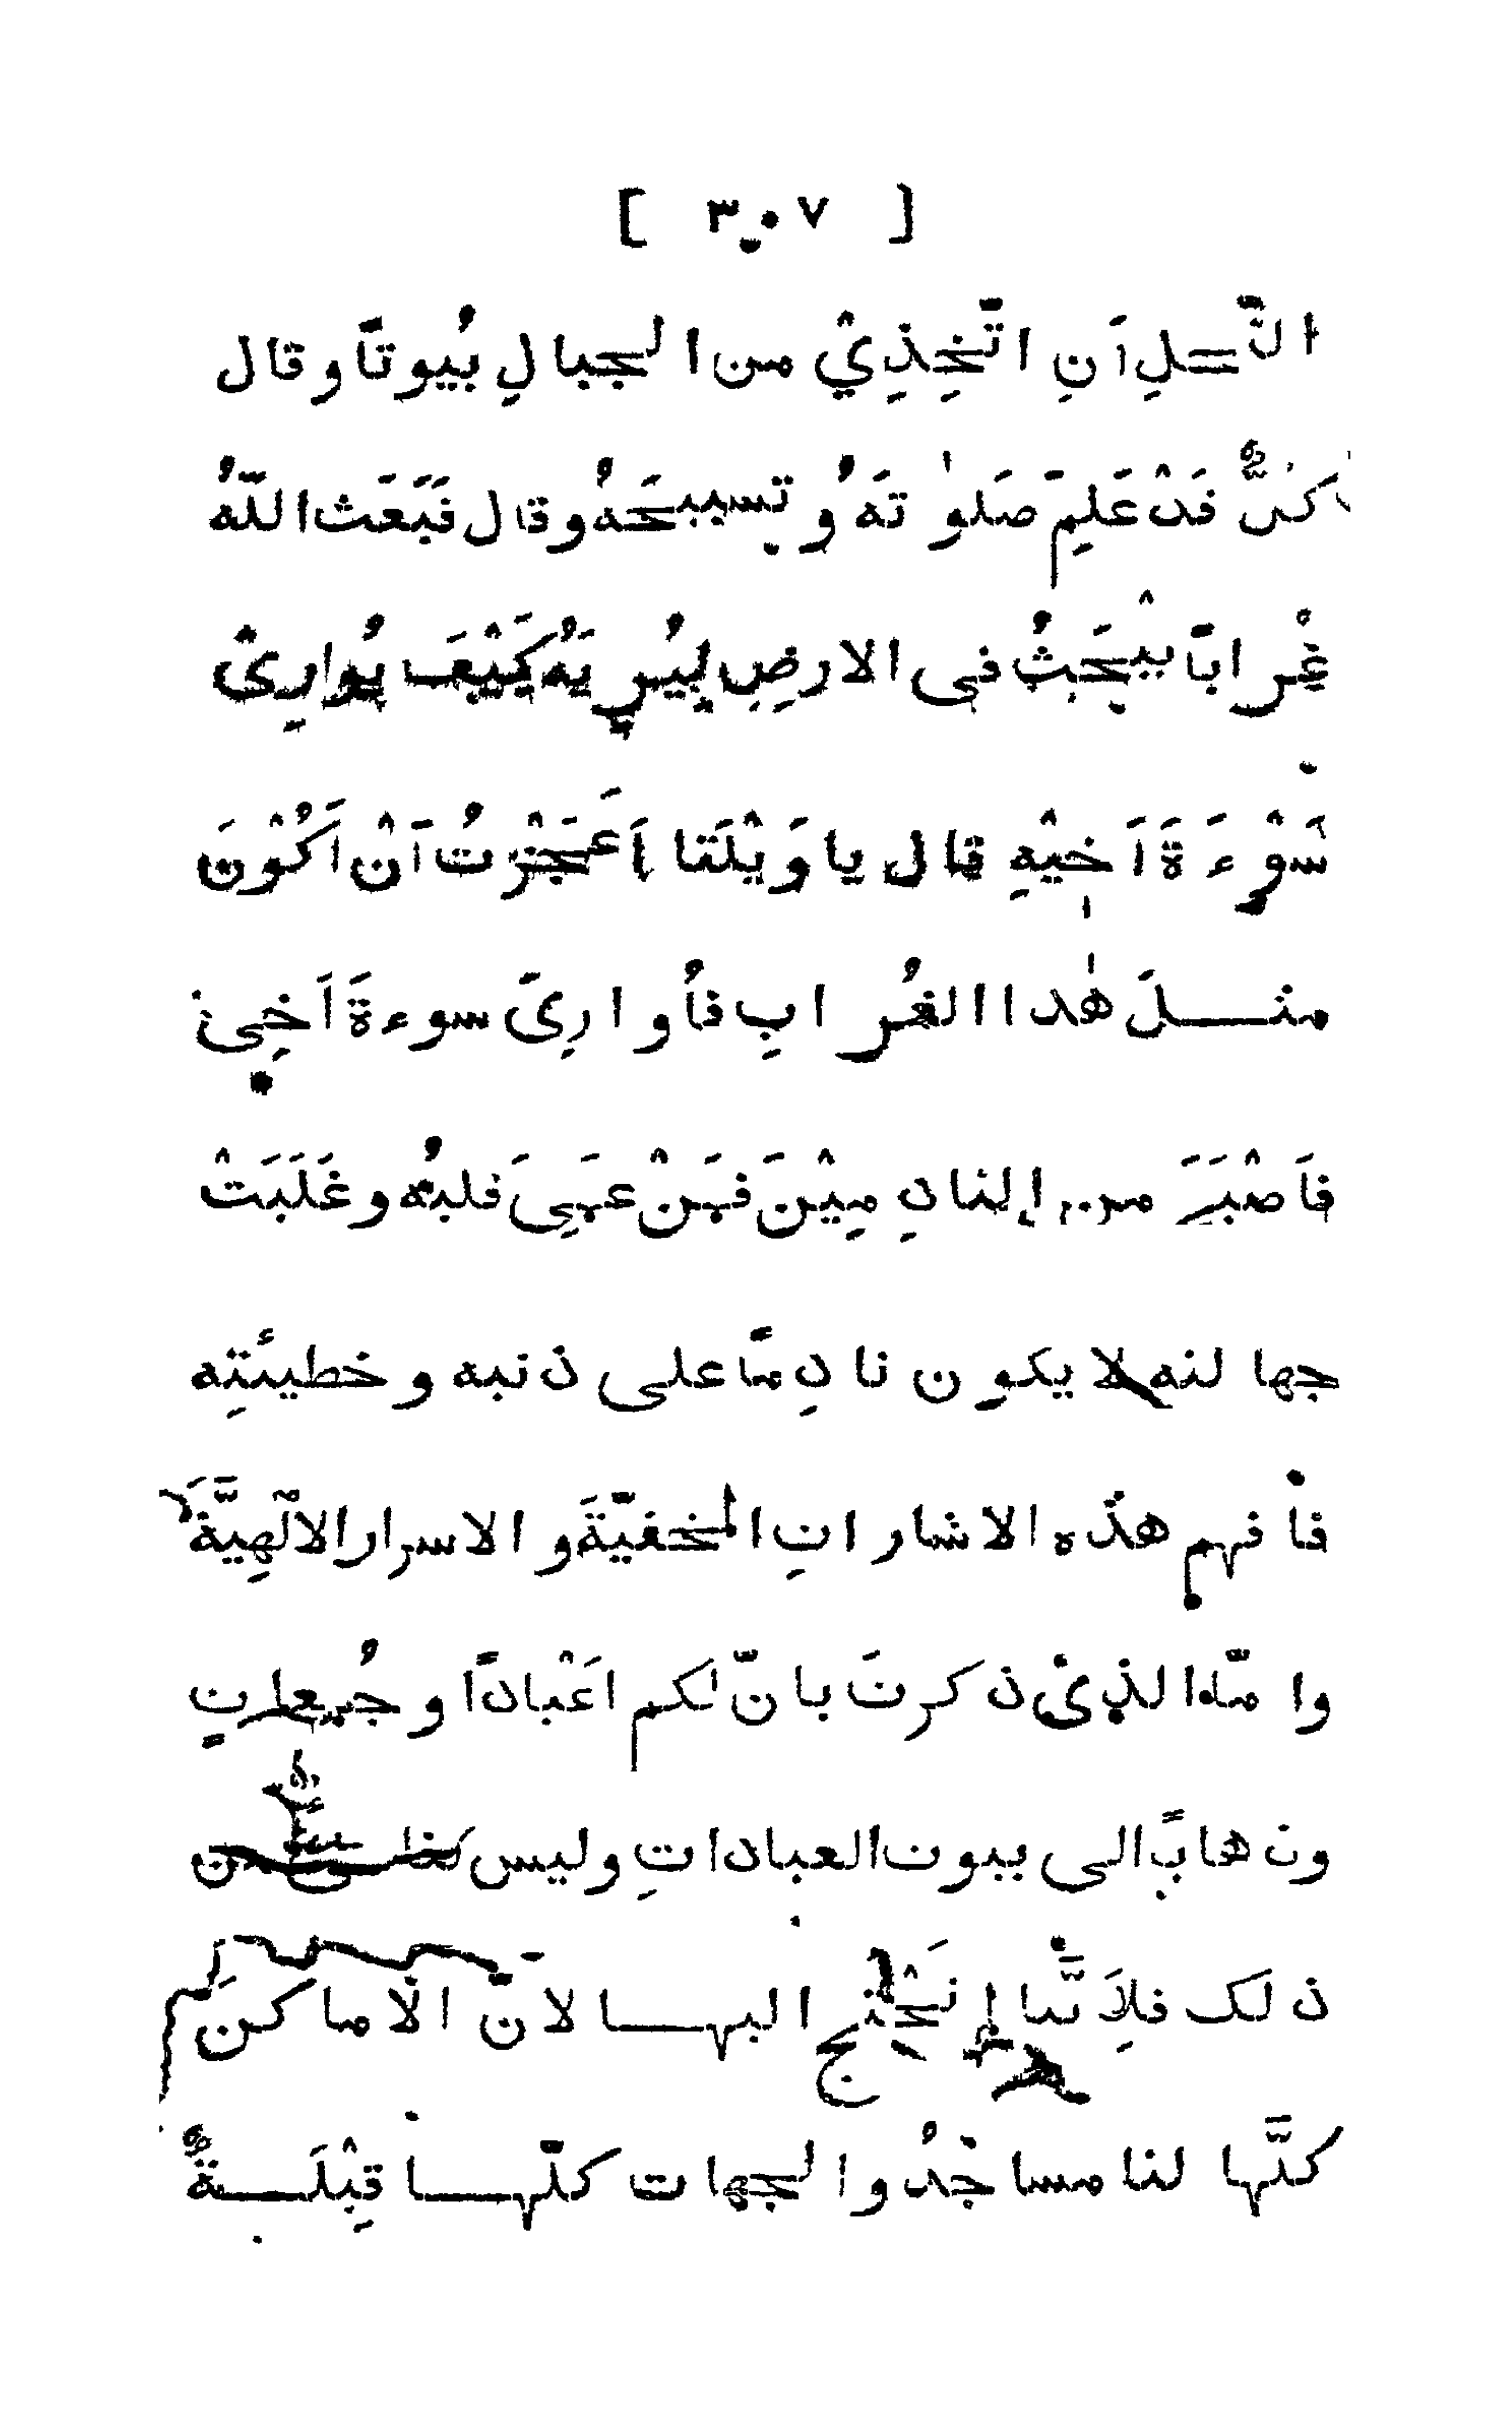 [ ٣٠٧ ]
النَّحلِ اَنِ اتَّخِذِيْ من الجبالِ بُيوتًا وقال
كلٌّ قَدْ عَلِمَ صَلوٰتَهُ و تسبيحَهُ وقال فَبَعَثَ اللّٰهُ
غُراباً يَبْحَثُ فى الارضِ لِيُرِيَهُ كَيْفَ يُوارِىْ
سَوْءَةَ اَخِيْهِ قال يا وَيْلَتا اَعَجَزْتُ اَنْ اَكُوْنَ
مثلَ هٰذا الغُرابِ فأُوارِىَ سوءةَ اَخِىْ
فاَصْبَحَ من النادِمِيْنَ فَمَنْ عَمِىَ قلبُه وغَلَبَتْ
جهالته لا يكون نادِمًا على ذنبه و خطيئتِه
فافهم هذه الاشاراتِ المخفيّةَ و الاسرار الالٰهِيَّةَ
وامّا الذىْ ذكرتَ بانّ لكم اَعْيادًا و جُمعاتٍ
وذهابً الى بيوت العباداتِ وليس لنا شئٌ من
ذلك فلِاَنَّا لم نَحْتَجْ اليها لانّ الاَماكنَ
كلَّها لنا مساجدُ والجهات كلّها قِبْلَةٌ